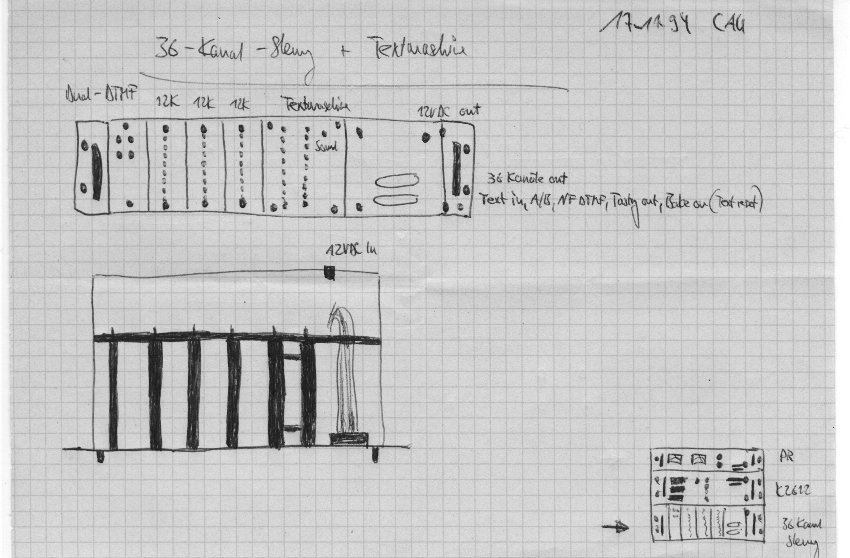 17.1.94 CAG
36-Kanal-Steurg + Textmaschine
Dual-DTMF 12K 12K 12K Textmaschine 12VDC out
Sound
36 Kanäle out
Text in, A/B, NF DTMF, out, (Text reset)
12VDC in
AR
K2612
36 Kanal
Steurg